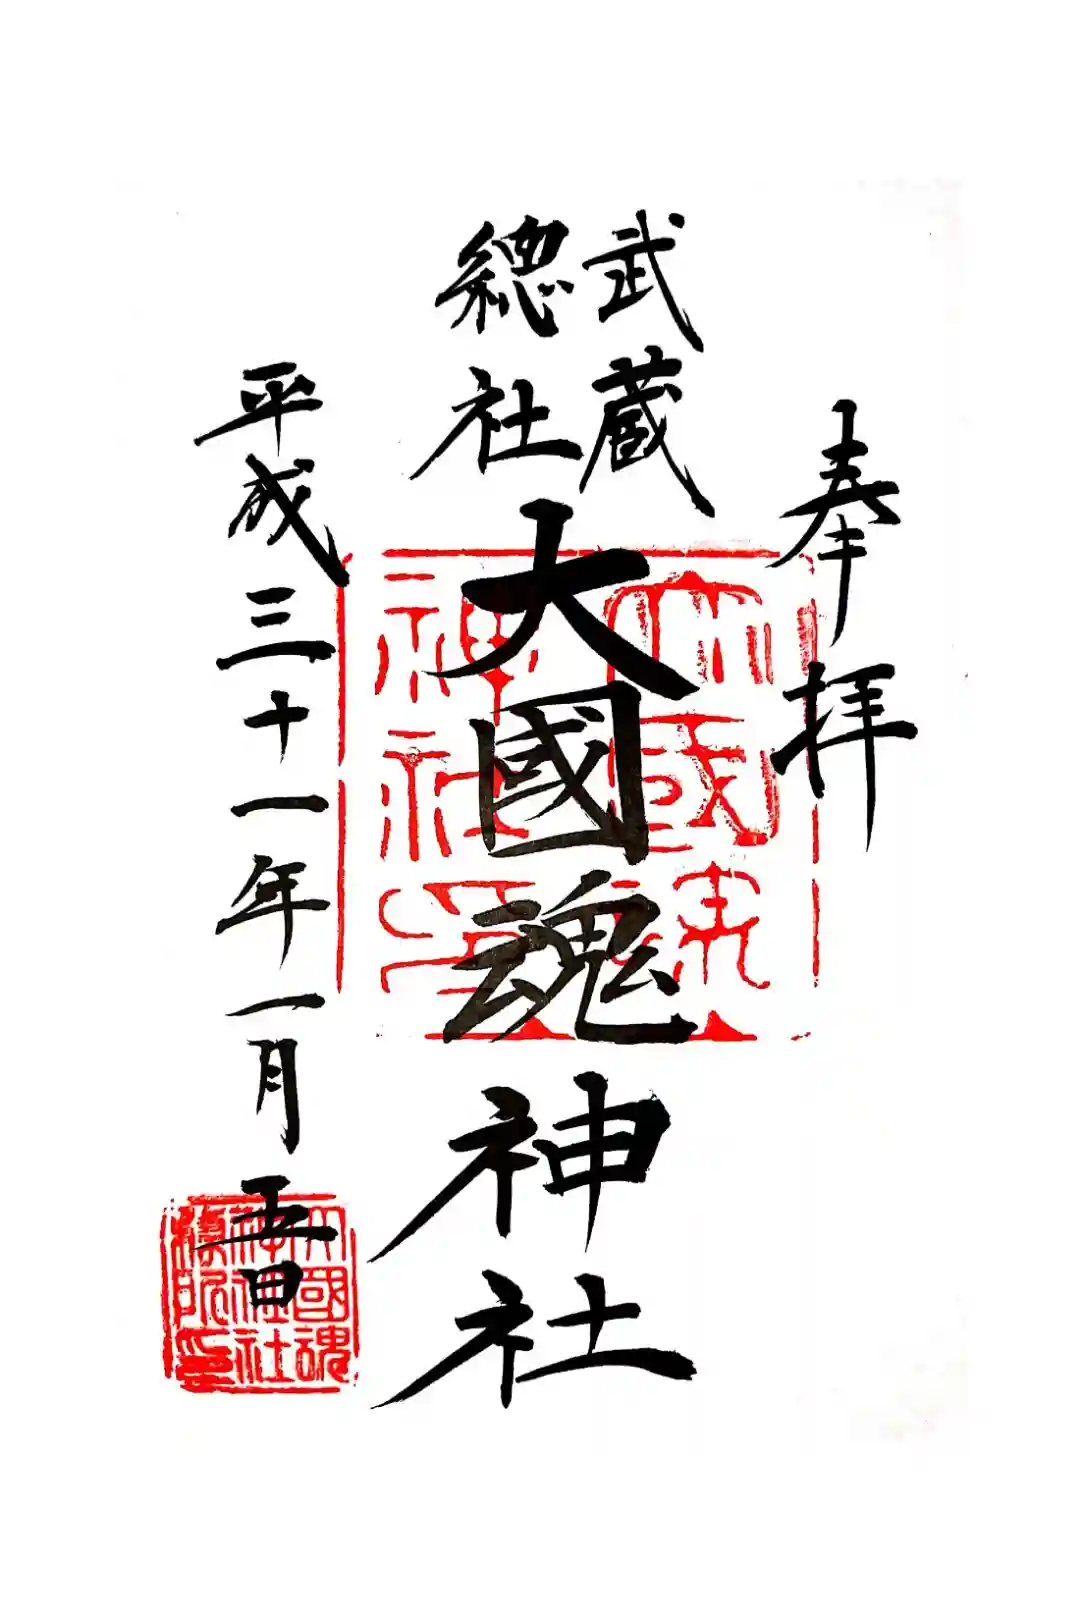 奉拝
武蔵
總社
大國魂神社
平成三十一年一月五日
大國魂
神社印
大國魂
神社社
務所印